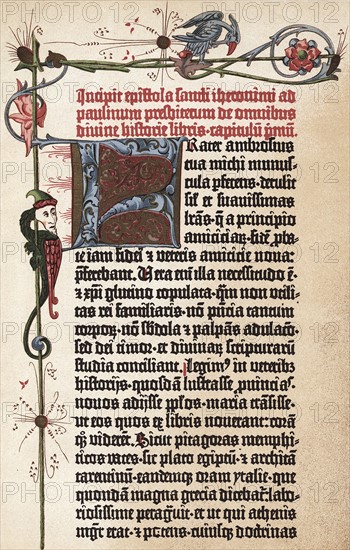 Incipit epistola sancti iheronimi ad
paulinum presbiterum de omnibus
divine historie libris·capitulū pmū.
Frater ambrosius
tua michi munus-
cula pferens·detulit
sil et suavissimas
lrās·q̄ a principio
amiciciar·fidē pba-
te iam fidei et veteris amicicie nova:
pferebant. Vera eni illa necessitudo ē·
et xpi glutino copulata·qm non utili-
tas rei familiaris·nō pn̄cia tantum
corpor·nō sbdola et palpās adulacō·
sed dei timor·et divinar scripturarū
studia conciliant. Legim in veteribs
historijs·quosdā lustrasse puīcias·
novos adijsse pplos·maria trāsisse·
ut eos quos ex libris noverant: corā
q̄ viderēt. Sicut pitagoras memphi-
ticos vates·sic plato egiptū·et architā
tarentinū·eandemq oram ytalie·que
quondā magna grecia dicebat: labo-
riosissime peragvit·et ut qui athenis
mgr erat·et potens·cuiusq doctrinas
PHOTO12